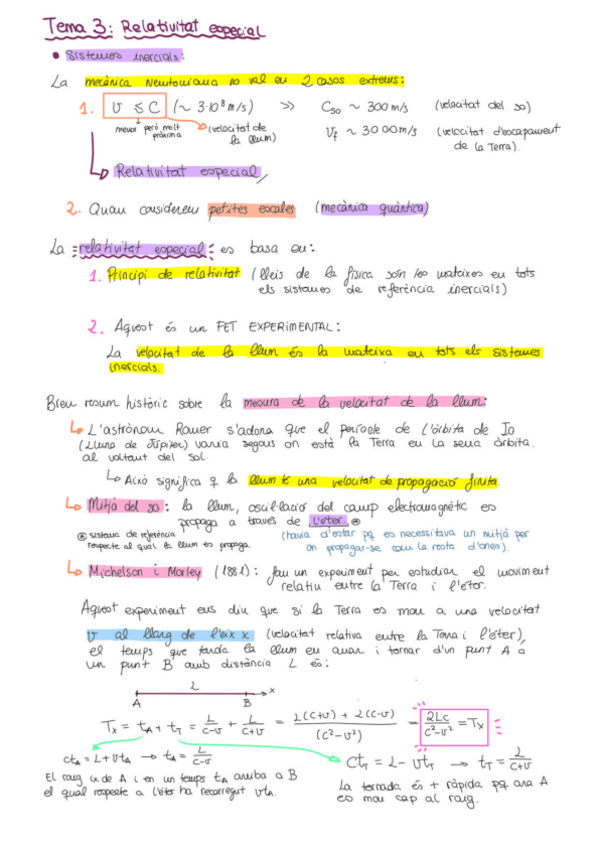 Tema 3: Relativitat especial
• Sistemes inercials:
La mecànica Newtoniana no val en 2 casos extrems:
1. v ≤ C (~ 3·10⁸ m/s) >> Cso ~ 300 m/s (velocitat del so)
menor però molt pròxima
(velocitat de la llum)
Vf ~ 30000 m/s (velocitat d'escapament de la Terra).
↳ Relativitat especial
2. Quan considerem petites escales (mecànica quàntica)
La relativitat especial es basa en:
1. Principi de relativitat (lleis de la física són les mateixes en tots
els sistemes de referència inercials)
2. Aquest és un FET EXPERIMENTAL:
La velocitat de la llum és la mateixa en tots els sistemes
inercials.
Breu resum històric sobre la mesura de la velocitat de la llum:
↳ L'astrònom Romer s'adona que el període de l'òrbita de Io
(Lluna de Júpiter) varia segons on està la Terra en la seua òrbita.
al voltant del sol.
↳ Això significa q la llum té una velocitat de propagació finita.
↳ Mitjà del so: la llum, oscil·lació del camp electromagnètic es
propaga a través de l'èter. ⊛
⊛ sistema de referència
respecte al qual la llum es propaga.
(havia d'estar pq es necessitava un mitjà per
on propagar-se com la resta d'ones).
↳ Michelson i Morley (1881): fan un experiment per estudiar el moviment
relatiu entre la Terra i l'èter.
Aquest experiment ens diu que si la Terra es mou a una velocitat
v al llarg de l'eix x (velocitat relativa entre la Terra i l'èter),
el temps que tarda la llum en anar i tornar d'un punt A a
un punt B amb distància L és:
L
A B x
Tx = tA + tT = L/(C-v) + L/(C+v) = L(C+v) + L(C-v)/(C²-v²) = 2LC/(C²-v²) = Tx
ctA = L + vtA → tA = L/(C-v)
ctT = L - vtT → tT = L/(C+v)
El raig ix de A i en un temps tA arriba a B
el qual respecte a l'èter ha recorregut vtA.
La tornada és + ràpida pq ara A
es mou cap al raig.